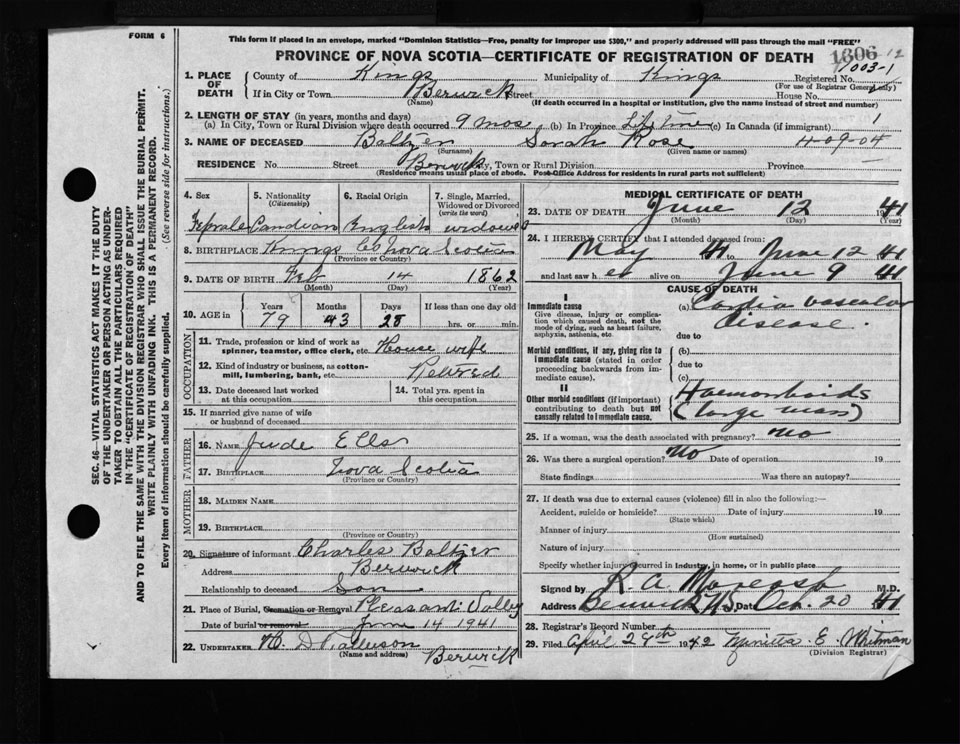 FORM 6
This form if placed in an envelope, marked "Dominion Statistics—Free, penalty for improper use $300," and properly addressed will pass through the mail "FREE"
PROVINCE OF NOVA SCOTIA—CERTIFICATE OF REGISTRATION OF DEATH
1606 12
1. PLACE OF DEATH County of Kings Municipality of Kings Registered No. 1003-1
(For use of Registrar General only)
If in City or Town Berwick Street House No.
(Name) (If death occurred in a hospital or institution, give the name instead of street and number)
2. LENGTH OF STAY (in years, months and days)
(a) In City, Town or Rural Division where death occurred 9 mos. (b) In Province Life time (c) In Canada (if immigrant) 1
3. NAME OF DECEASED Baltzer Sarah Rose 4-09-04
(Surname) (Given name or names)
RESIDENCE No. Street Berwick City, Town or Rural Division Province
(Residence means usual place of abode. Post Office Address for residents in rural parts not sufficient)
4. Sex 5. Nationality (Citizenship) 6. Racial Origin 7. Single, Married, Widowed or Divorced (write the word)
Female Candian English widowed
8. BIRTHPLACE Kings Co Nova Scotia
(Province or Country)
9. DATE OF BIRTH Feb 14 1862
(Month) (Day) (Year)
10. AGE in Years Months Days If less than one day old
79 43 28 hrs. or min.
OCCUPATION
11. Trade, profession or kind of work as spinner, teamster, office clerk, etc. House wife
12. Kind of industry or business, as cotton-mill, lumbering, bank, etc. Retired
13. Date deceased last worked at this occupation
14. Total yrs. spent in this occupation
15. If married give name of wife or husband of deceased
FATHER
16. NAME Jude Ells
17. BIRTHPLACE Nova Scotia
(Province or Country)
MOTHER
18. MAIDEN NAME
19. BIRTHPLACE
(Province or Country)
20. Signature of informant Charles Baltzer
Address Berwick
Relationship to deceased Son
21. Place of Burial, Cremation or Removal Pleasant Valley
Date of burial or removal June 14 1941
22. UNDERTAKER
(Name and address) Berwick
MEDICAL CERTIFICATE OF DEATH
23. DATE OF DEATH June 12 1941
(Month) (Day) (Year)
24. I HEREBY CERTIFY that I attended deceased from:
May 41 to June 12 41
and last saw h er alive on June 9 41
CAUSE OF DEATH
I
Immediate cause (a) Cardio vascular
Give disease, injury or complication which caused death, not the mode of dying, such as heart failure, asphyxia, asthenia, etc. disease.
due to
Morbid conditions, if any, giving rise to immediate cause (stated in order proceeding backwards from immediate cause). (b)
due to
(c)
II
Other morbid conditions (if important) contributing to death but not causally related to immediate cause. Haemorrhoids
(large mass)
25. If a woman, was the death associated with pregnancy? No
26. Was there a surgical operation? No Date of operation 19
State findings Was there an autopsy?
27. If death was due to external causes (violence) fill in also the following:—
Accident, suicide or homicide? Date of injury 19
(State which)
Manner of injury
(How sustained)
Nature of injury
Specify whether injury occurred in industry, in home, or in public place
Signed by R. A. M.D.
Address Berwick NS Date Oct. 20 41
28. Registrar's Record Number
29. Filed April 29th 1942 E. Whitman
(Division Registrar)
SEC. 46—VITAL STATISTICS ACT MAKES IT THE DUTY
OF THE UNDERTAKER OR PERSON ACTING AS UNDER-
TAKER TO OBTAIN ALL THE PARTICULARS REQUIRED
IN THE "CERTIFICATE OF REGISTRATION OF DEATH"
AND TO FILE THE SAME WITH THE DIVISION REGISTRAR WHO SHALL ISSUE THE BURIAL PERMIT.
WRITE PLAINLY WITH UNFADING INK. THIS IS A PERMANENT RECORD.
Every item of information should be carefully supplied. (See reverse side for instructions.)